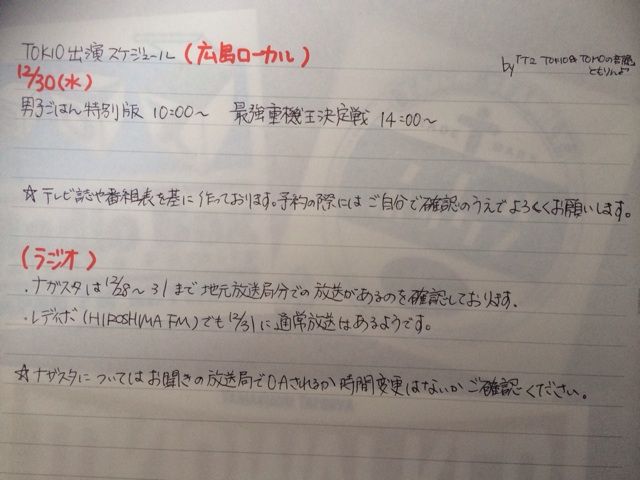 TOKIO出演スケジュール(広島ローカル)
by TT2 TOKIO& TOKIOの
ともりん♪
12/30(水)
男子ごはん特別版 10:00〜 最強重機王決定戦 14:00〜
☆テレビ誌や番組表を基に作っております。予約の際にはご自分で確認のうえでよろしくお願いします。
(ラジオ)
・ナガスタは12/28〜31まで地元放送局分での放送があるのを確認しております。
・レディオ(HIROSHIMA FM)でも12/31に通常放送はあるようです。
☆ナガスタについてはお聞きの放送局でOAされるか時間変更はないかご確認ください。